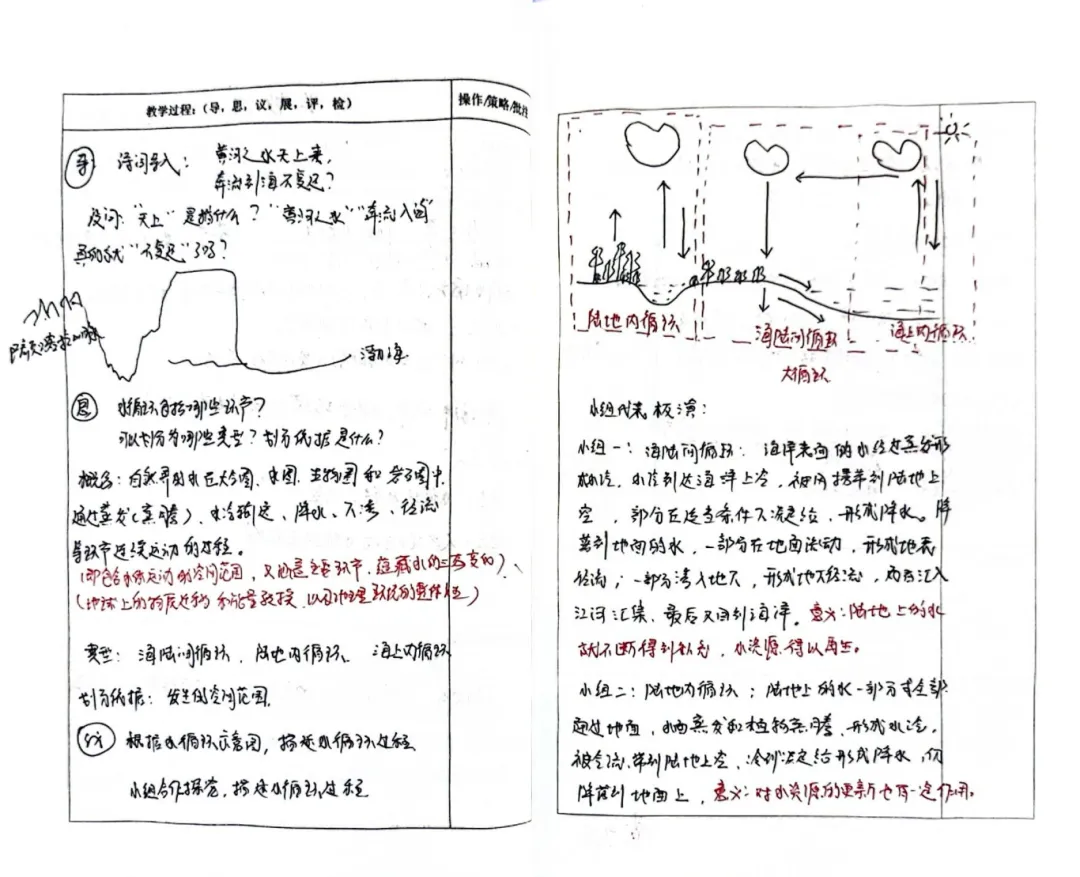 教学过程：(导，思，议，展，评，检)
操作/策略/批注
导 诗词导入： 黄河之水天上来，
奔流到海不复还？
反问："天上"是指什么？"黄河之水""奔流入海"
真的就"不复还"了吗？
渤海
思 水循环包括哪些环节？
可以划分为哪些类型？划分依据是什么？
概念：自然界的水在大气圈、水圈、生物圈和岩石圈中，
通过蒸发(蒸腾)、水汽输送、降水、下渗、径流
等环节连续运动的过程。
(即包含水体运动的空间范围，又概述主要环节，蕴藏水的三态变的)、
(地球上的物质迁移和能量转换，以及地理环境的整体性)
类型：海陆间循环、陆地内循环、海上内循环
划分依据：发生的空间范围。
议 根据水循环示意图，描述水循环过程
小组合作探究，描述水循环过程
陆地内循环
海陆间循环
海上内循环
大循环
小组代表板演：
小组一：海陆间循环：海洋表面的水经过蒸发形
成水汽，水汽到达海洋上空，被风携带到陆地上
空，部分在适当条件下凝结，形成降水。降
落到地面的水，一部分在地面流动，形成地表
径流；一部分渗入地下，形成地下径流，两者汇入
江河汇集，最后又回到海洋。意义：陆地上的水
就不断得到补充，水资源得以再生。
小组二：陆地内循环；陆地上的水一部分或全部
通过地面、水面蒸发和植物蒸腾，形成水汽，
被气流带到陆地上空，冷却凝结形成降水，仍
降落到地面上，意义：对水资源的更新也有一定作用。